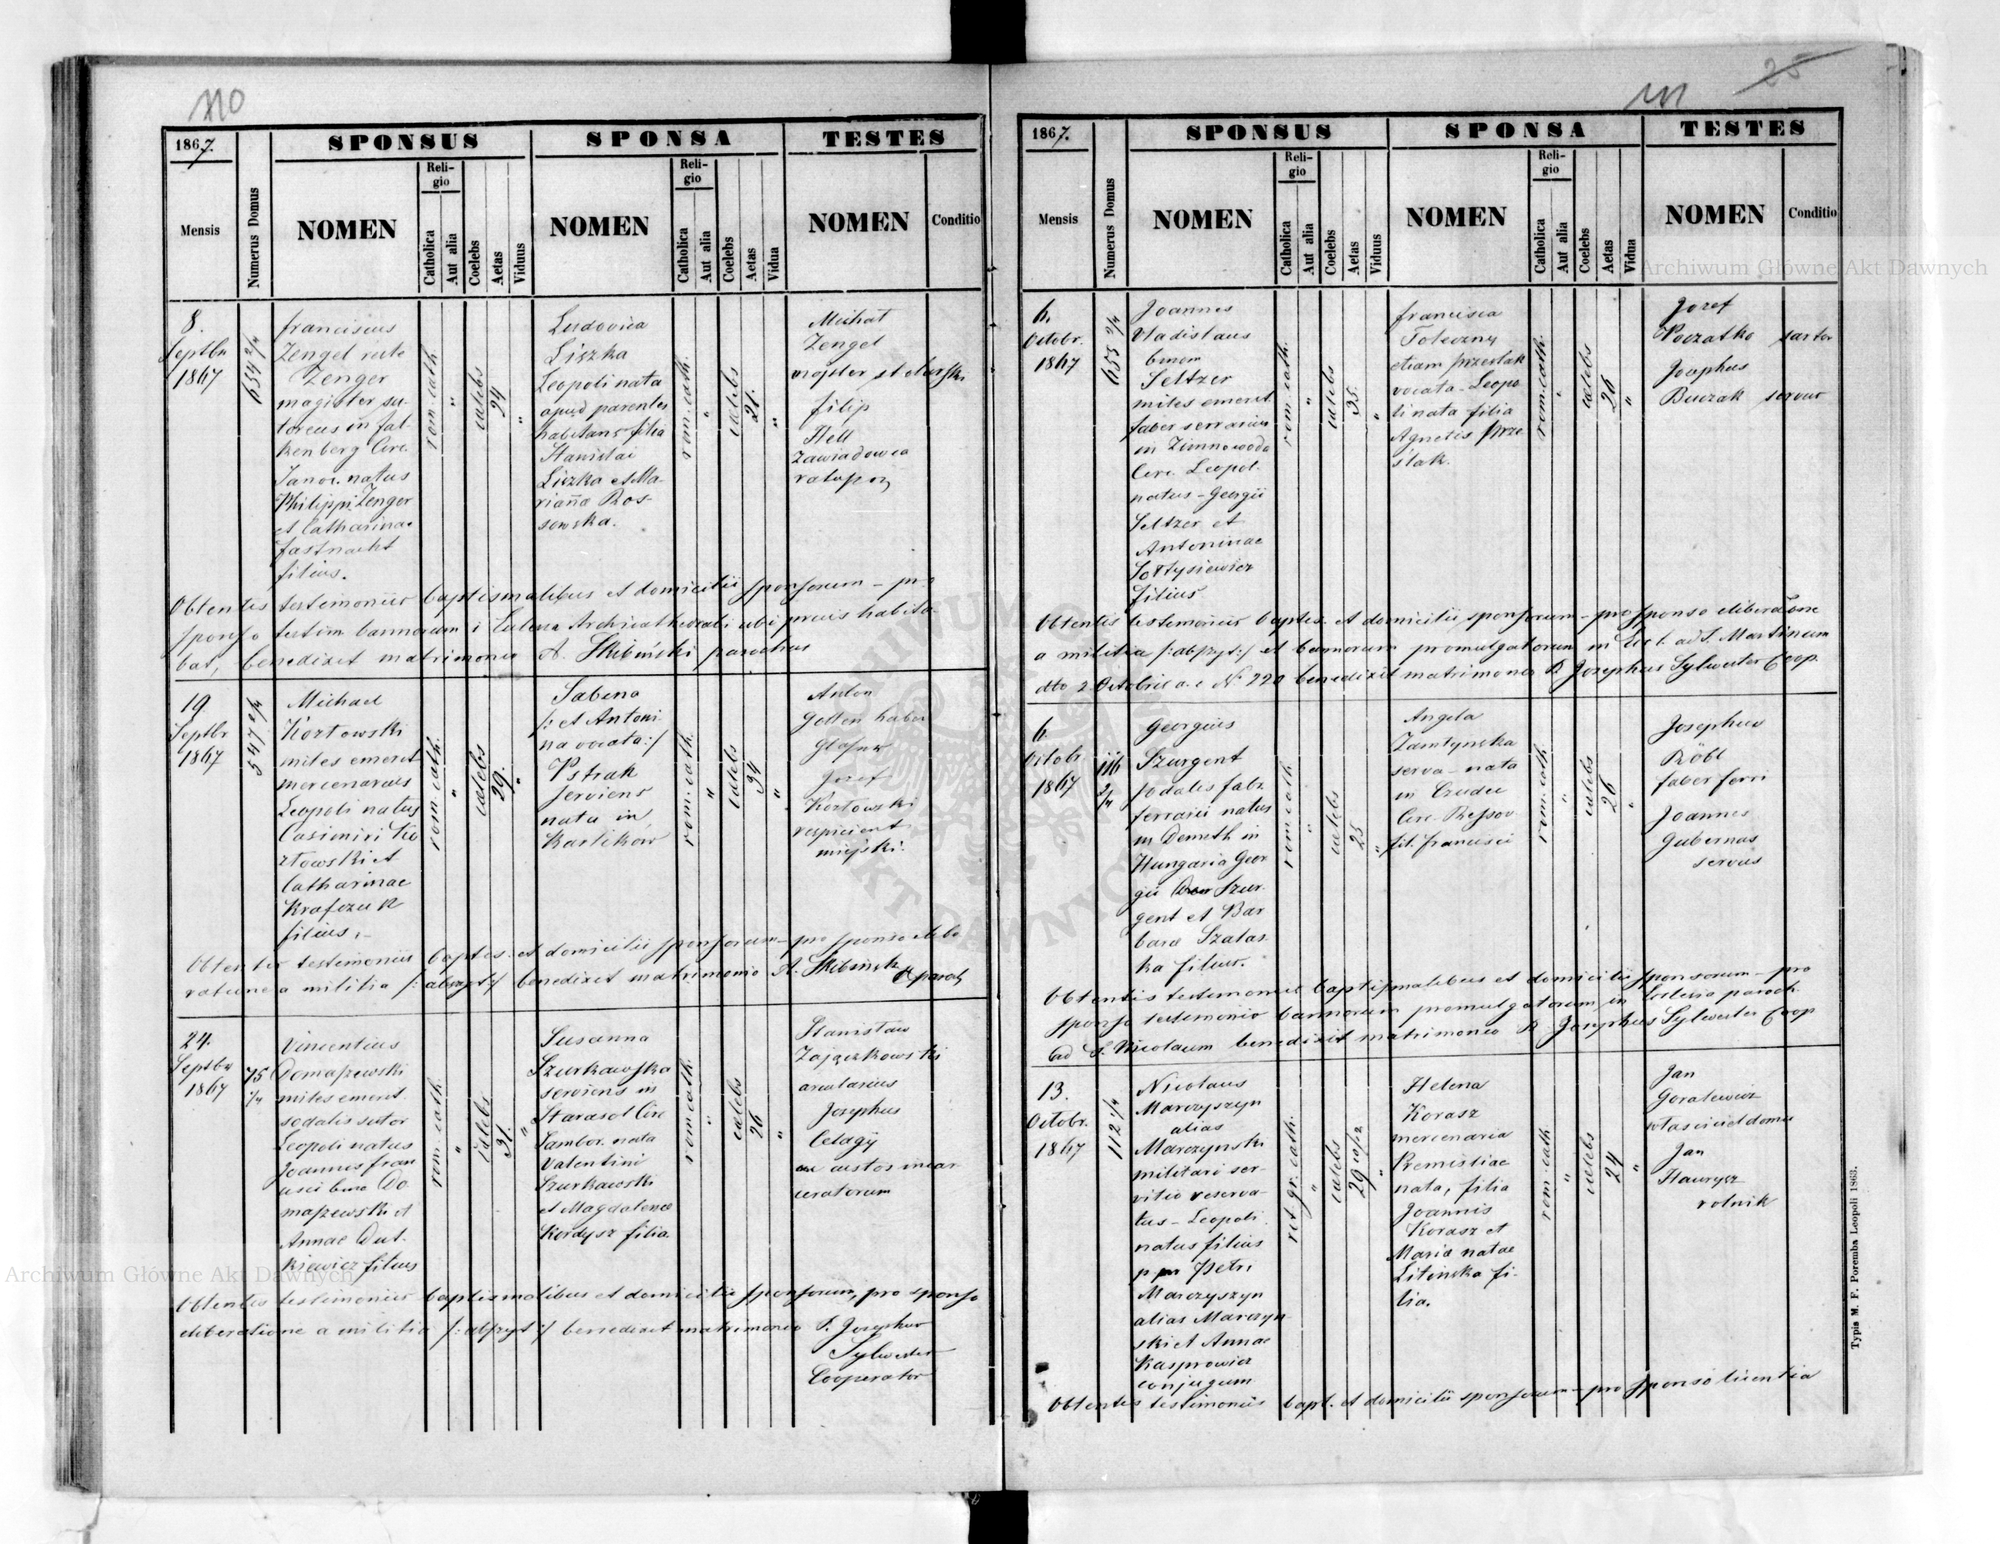 110
1867.
SPONSUS
SPONSA
TESTES
Mensis
Numerus Domus
NOMEN
Religio
Catholica
Aut alia
Coelebs
Aetas
Viduus
NOMEN
Religio
Catholica
Aut alia
Coelebs
Aetas
Vidua
NOMEN
Conditio
8.
Septbr
1867
654 2/4
Franciscus
Zengel recte
Zenger
magister su-
toreus in Fal-
kenberg Circ.
Sanoc. natus
Philippi Zenger
et Catharinae
Fastnacht
filius.
rom. cath.
"
caelebs
24
"
Ludovica
Liszka
Leopoli nata
apud parentes
habitans filia
Stanislai
Liszka et Ma-
rianna Ros-
sowska.
rom. cath.
"
caelebs
21.
"
Michał
Zengel
majster stolarski
Filip
Hell
zawiadowca
Obtentis testimoniis baptismalibus et domicilii sponsorum – pro
sponso testim. bannorum i Eccl. Archicathedrali ubi prius habita
bat, benedixit matrimonio A. Skibiński parochus
19
Septbr
1867
547 2/4
Michael
Kozłowski
miles emerit.
mercenarius
Leopoli natus
Casimiri Ko-
złowski et
Catharinae
Krafczuk
filius.
rom. cath.
"
caelebs
29.
"
Sabena
/: et Antoni-
na vocata :/
Pstrak
serviens
nata in
Karlików
rom. cath.
"
caelebs
34
"
Anton
Józef
Kozłowski
respicient
miejski.
Obtentis testimoniis baptis. et domicilii sponsorum – pro sponso delibe
ratione a militia /: abszyt :/ benedixit matrimonio A. Skibiński
paroch
24.
Septbr
1867
75
2/4
Vincentius
Domaszewski
miles emerit.
sodalis sutor
Leopoli natus
Joannis Fran
cisci binom Do
maszewski et
Annae Dut-
kiewicz filius
rom. cath.
"
caelebs
31.
"
Susanna
Szurkawska
serviens in
Starasol Circ
Sambor. nata
Valentini
Szurkawski
et Magdalenae
Kordysz filia.
rom cath.
"
caelebs
26
"
Stanislaus
Zajączkowski
arcularius
Josephus
custos incar
ceratorum
Obtentis testimoniis baptismalibus et domicilii sponsorum, pro sponso
deliberatione a militia /: abszyt :/ benedixit matrimonio P. Josephus
Sylwester
Cooperator
111
25
1867.
SPONSUS
SPONSA
TESTES
Mensis
Numerus Domus
NOMEN
Religio
Catholica
Aut alia
Coelebs
Aetas
Viduus
NOMEN
Religio
Catholica
Aut alia
Coelebs
Aetas
Vidua
NOMEN
Conditio
6.
Octobr.
1867
655 2/4
Joannes
Vladislaus
binom
Seltzer
miles emerit.
faber serrarius
in Zimnowoda
Circ. Leopol.
natus – Georgii
Seltzer et
Antoninae
Sołtysiewicz
filius
rom. cath.
"
caelebs
35.
"
Francisca
Toleczny
etiam Prześlak
vocata – Leopo-
li nata filia
Agnetis Prze
ślak.
rom. cath.
"
caelebs
26
"
Jozef
Poczatko sartor
Josephus
Burzak servus
Obtentis testimoniis baptis. et domicilii sponsorum – pro sponso deliberatione
a militia /: abszyt :/ et bannorum promulgatorum in Eccl. ad S. Martinum
dto 2 Octobris a. c. No 220 benedixit matrimonio P. Josephus Sylwester Coop.
6.
Octobr
1867
116
2/4
Georgius
Szurgent
sodalis fabr.
ferrarii natus
in Demeth in
Hungaria Geor
gii Szur-
gent et Bar
bara Szalas
ka filius.
rom. cath
"
caelebs
25
"
Angela
Zamłynska
serva – nata
in Czudec
Circ. Ressov
fil. Francisci
rom. cath
"
caelebs
26
"
Josephus
Röbl
faber ferri
Joannes
Gubernas
servus
Obtentis testimoniis baptismalibus et domicilii sponsorum – pro
sponso testimonio bannorum promulgatorum in Ecclesia paroch.
ad S. Nicolaum benedixit matrimonio P. Josephus Sylwester Coop
13.
Octobr.
1867
112 2/4
Nicolaus
Marczyszyn
alias
Marczynski
militari ser-
vitio reserva-
tus – Leopoli
natus filius
Petri
Marczyszyn
alias Marczyn
ski et Annae
Kasprowicz
conjugum
rit. gr. cath.
"
caelebs
29 10/12
"
Helena
Korasz
mercenaria
Premisliae
nata, filia
Joannis
Korasz et
Maria natae
Litinska fi-
lia.
rom. cath
"
caelebs
24
"
Jan
Goralewicz
właściciel domu
Jan
Hawrysz
rolnik
Obtentis testimoniis bapt. et domicilii sponsorum – pro sponso licentia
Typis M. F. Poremba Leopoli 1863.
Archiwum Główne Akt Dawnych
Archiwum Główne Akt Dawnych